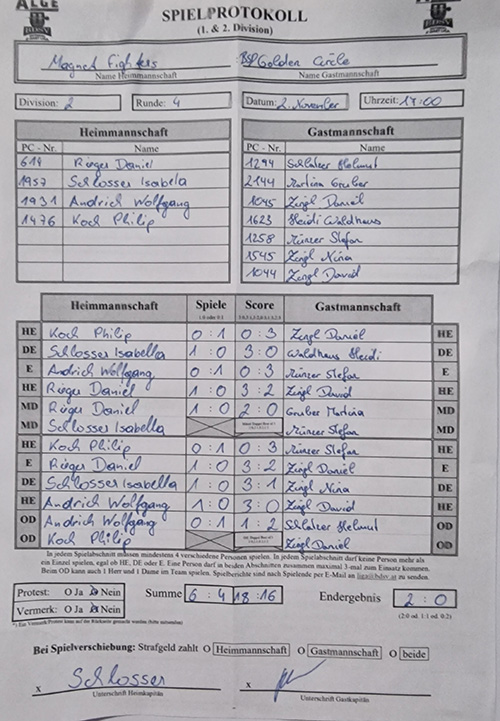 ALGE
SPIELPROTOKOLL
(1. & 2. Division)
Magnet Fighters BSP Golden Circle
Name Heimmannschaft Name Gastmannschaft
Division: 2 Runde: 4 Datum: 2. November Uhrzeit: 17:00
Heimmannschaft Gastmannschaft
PC - Nr. Name PC - Nr. Name
614 Rüger Daniel 1294 Schlatzer Helmut
1957 Schlosser Isabela 2144 Martina Gruber
1931 Andrich Wolfgang 1045 Zingl Daniel
1476 Koch Philip 1623 Heidi Waldhaus
1258 Münzer Stefan
1545 Zingl Nina
1044 Zingl David
Heimmannschaft Spiele Score Gastmannschaft
HE Koch Philip 0:1 0:3 Zingl Daniel HE
DE Schlosser Isabella 1:0 3:0 Waldhaus Heidi DE
E Andrich Wolfgang 0:1 0:3 Münzer Stefan E
HE Rüger Daniel 1:0 3:2 Zingl David HE
MD Rüger Daniel 1:0 2:0 Gruber Martina MD
MD Schlosser Isabella Münzer Stefan MD
HE Koch Philip 0:1 0:3 Münzer Stefan HE
E Rüger Daniel 1:0 3:2 Zingl Daniel E
DE Schlosser Isabella 1:0 3:1 Zingl Nina DE
HE Andrich Wolfgang 1:0 3:0 Zingl David HE
OD Andrich Wolfgang 0:1 1:2 Schlatzer Helmut OD
OD Koch Philip Zingl Daniel OD
In jedem Spielabschnitt müssen mindestens 4 verschiedene Personen spielen. In jedem Spielabschnitt darf keine Person mehr als
ein Einzel spielen, egal ob HE, DE oder E. Eine Person darf in beiden Abschnitten zusammen maximal 3-mal zum Einsatz kommen.
Beim OD kann auch 1 Herr und 1 Dame im Team spielen. Spielberichte sind nach Spielende per E-Mail an liga@bdsv.at zu senden.
Protest: O Ja O Nein Summe 6:4 18:16 Endergebnis 2:0
Vermerk: O Ja O Nein (2:0 od. 1:1 od. 0:2)
Bei Spielverschiebung: Strafgeld zahlt O Heimmannschaft O Gastmannschaft O beide
x Schlosser x
Unterschrift Heimkapitän Unterschrift Gastkapitän